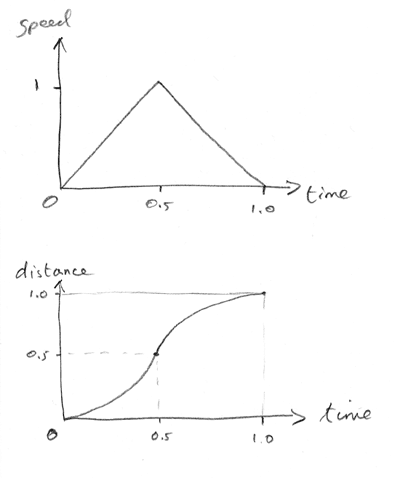 speed
1
0
0.5
1.0
time
distance
1.0
0.5
0
0.5
1.0
time